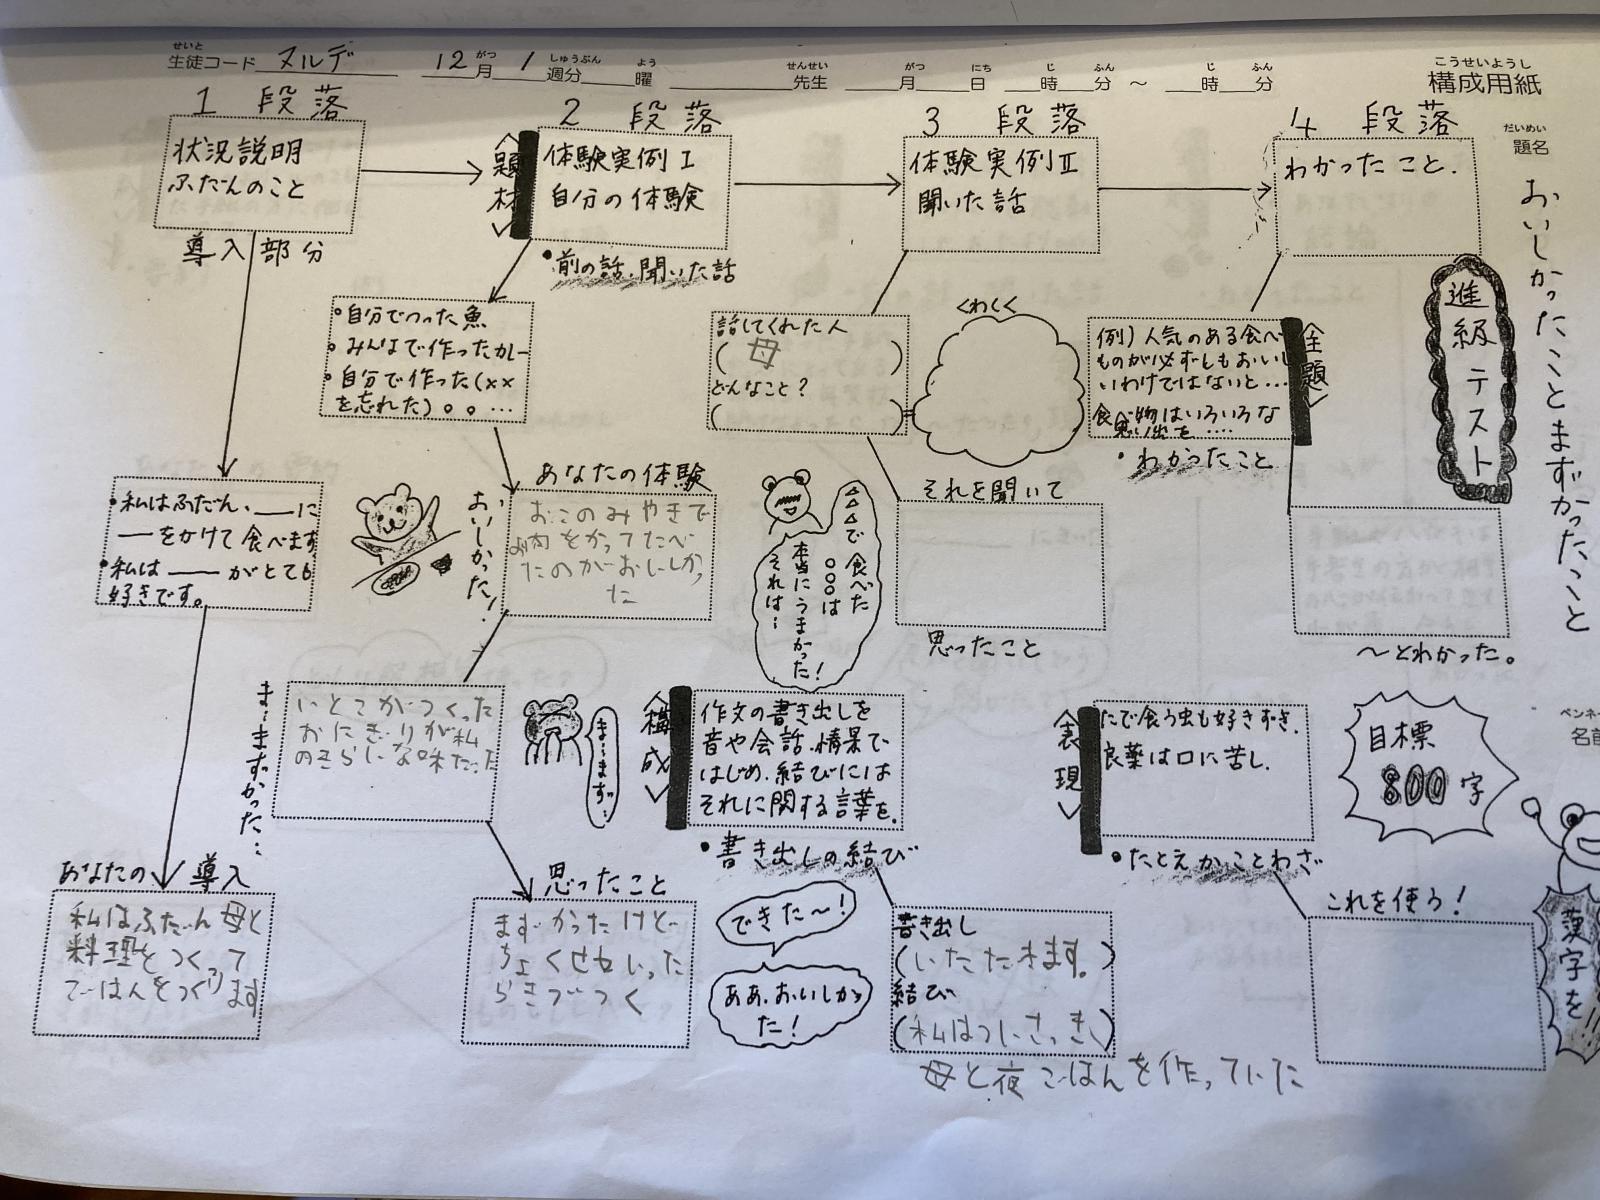 せいと
生徒コード ヌルデ 12月 1週分 曜 先生 月 日 時 分 ～ 時 分
がつ しゅうぶん よう せんせい がつ にち じ ふん じ ふん
こうせいようし
構成用紙
だいめい
題名
おいしかったこととまずかったこと
進級テスト
1 段落
状況説明
ふだんのこと
導入部分
・私はふだん、＿＿に
ーをかけて食べます
・私は＿＿がとても
好きです。
あなたの導入
私はふだん母と
料理をつくて
ごはんをつくります
2 段落
〈題材〉
体験実例Ⅰ
自分の体験
・前の話・聞いた話
・自分でつった魚
・みんなで作ったカレー
・自分で作った(××
を忘れた)。。…
あなたの体験
おいしかった!
おこのみやきで
お肉をかってたべ
たのがおいしかっ
た
まーまずかった…
いとこがつくった
おにぎりが私
のきらいな味だった
まーまず…
思ったこと
まずかったけど
3 段落
体験実例Ⅱ
聞いた話
話してくれた人
(母)
どんなこと?
( )
くわしく
それを聞いて
思ったこと
△△で食べた
○○○は
本当にうまかった!
それは…
〈構成〉
作文の書き出しを
音や会話、情景で
はじめ、結びには
それに関する言葉を。
・書き出しの結び
できた～!
ああ、おいしかっ
た!
書き出し
(いただきます。)
結び
(私はついさっき、)
母と夜ごはんを作っていた
4 段落
わかったこと.
例)人気のある食べ
ものが必ずしもおいし
いわけではないと…
食べ物はいろいろな
思い出を….
〈主題〉
・わかったこと
～とわかった。
〈表現〉
たで食う虫も好きずき.
良薬は口に苦し.
・たとえかことわざ
これを使う!
目標
800字
ペンネ
名前
漢字を!!